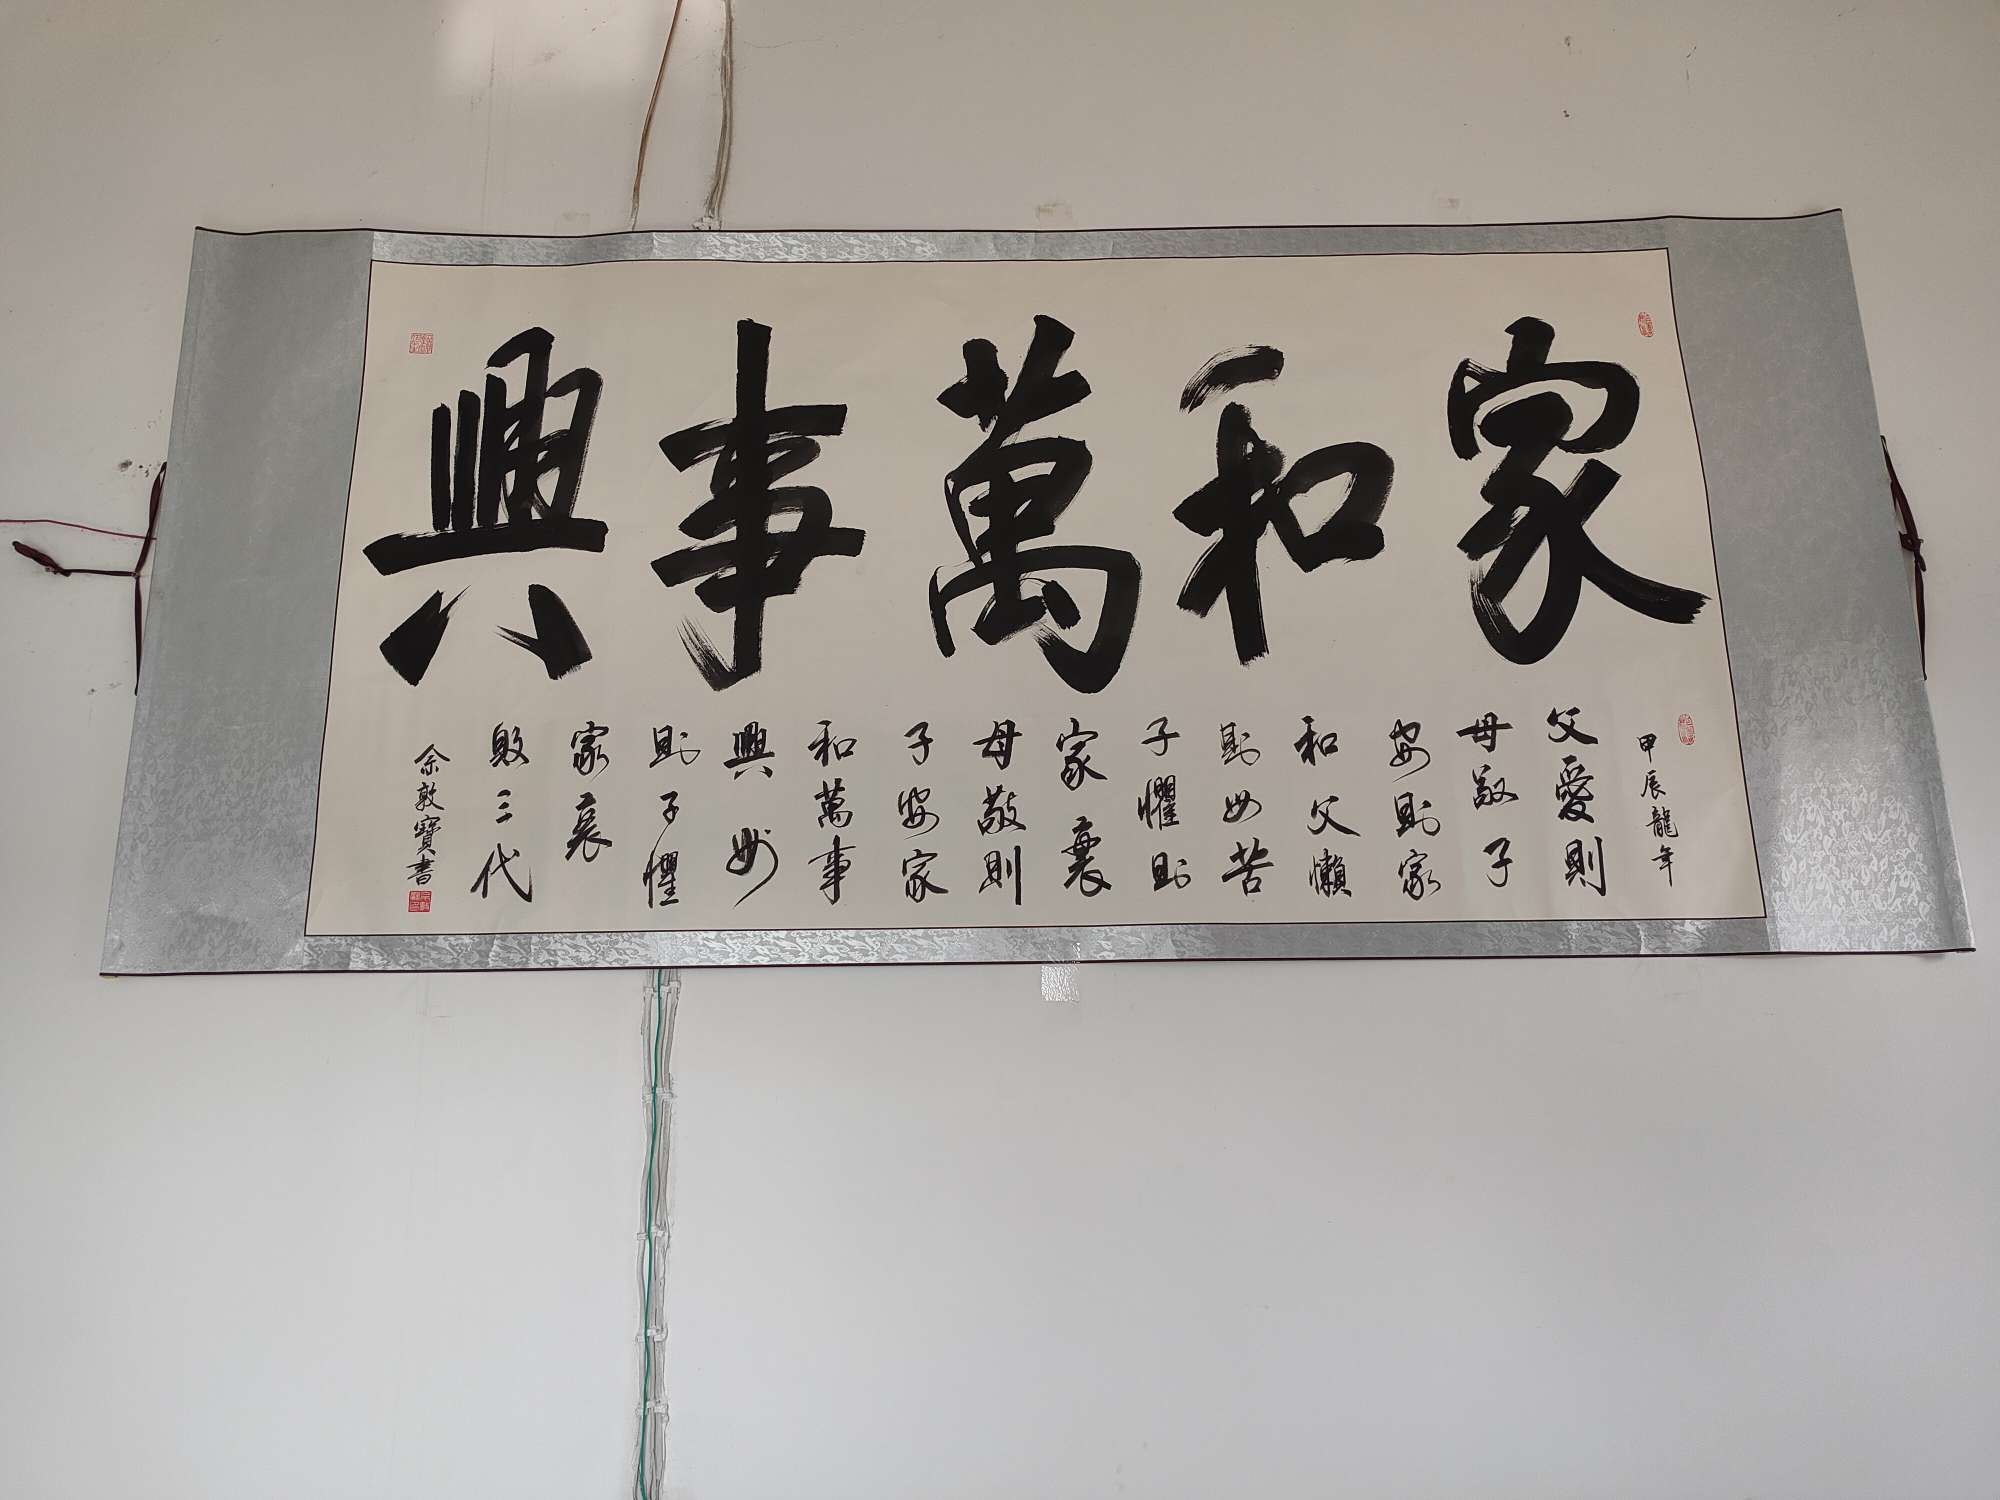 家和萬事興
甲辰龍年
父愛則
母敬子
安則家
和父懶
則母苦
子懼則
家衰
母敬則
子安家
和萬事
興
則子懼
家衰
敗三代
余敦寶書